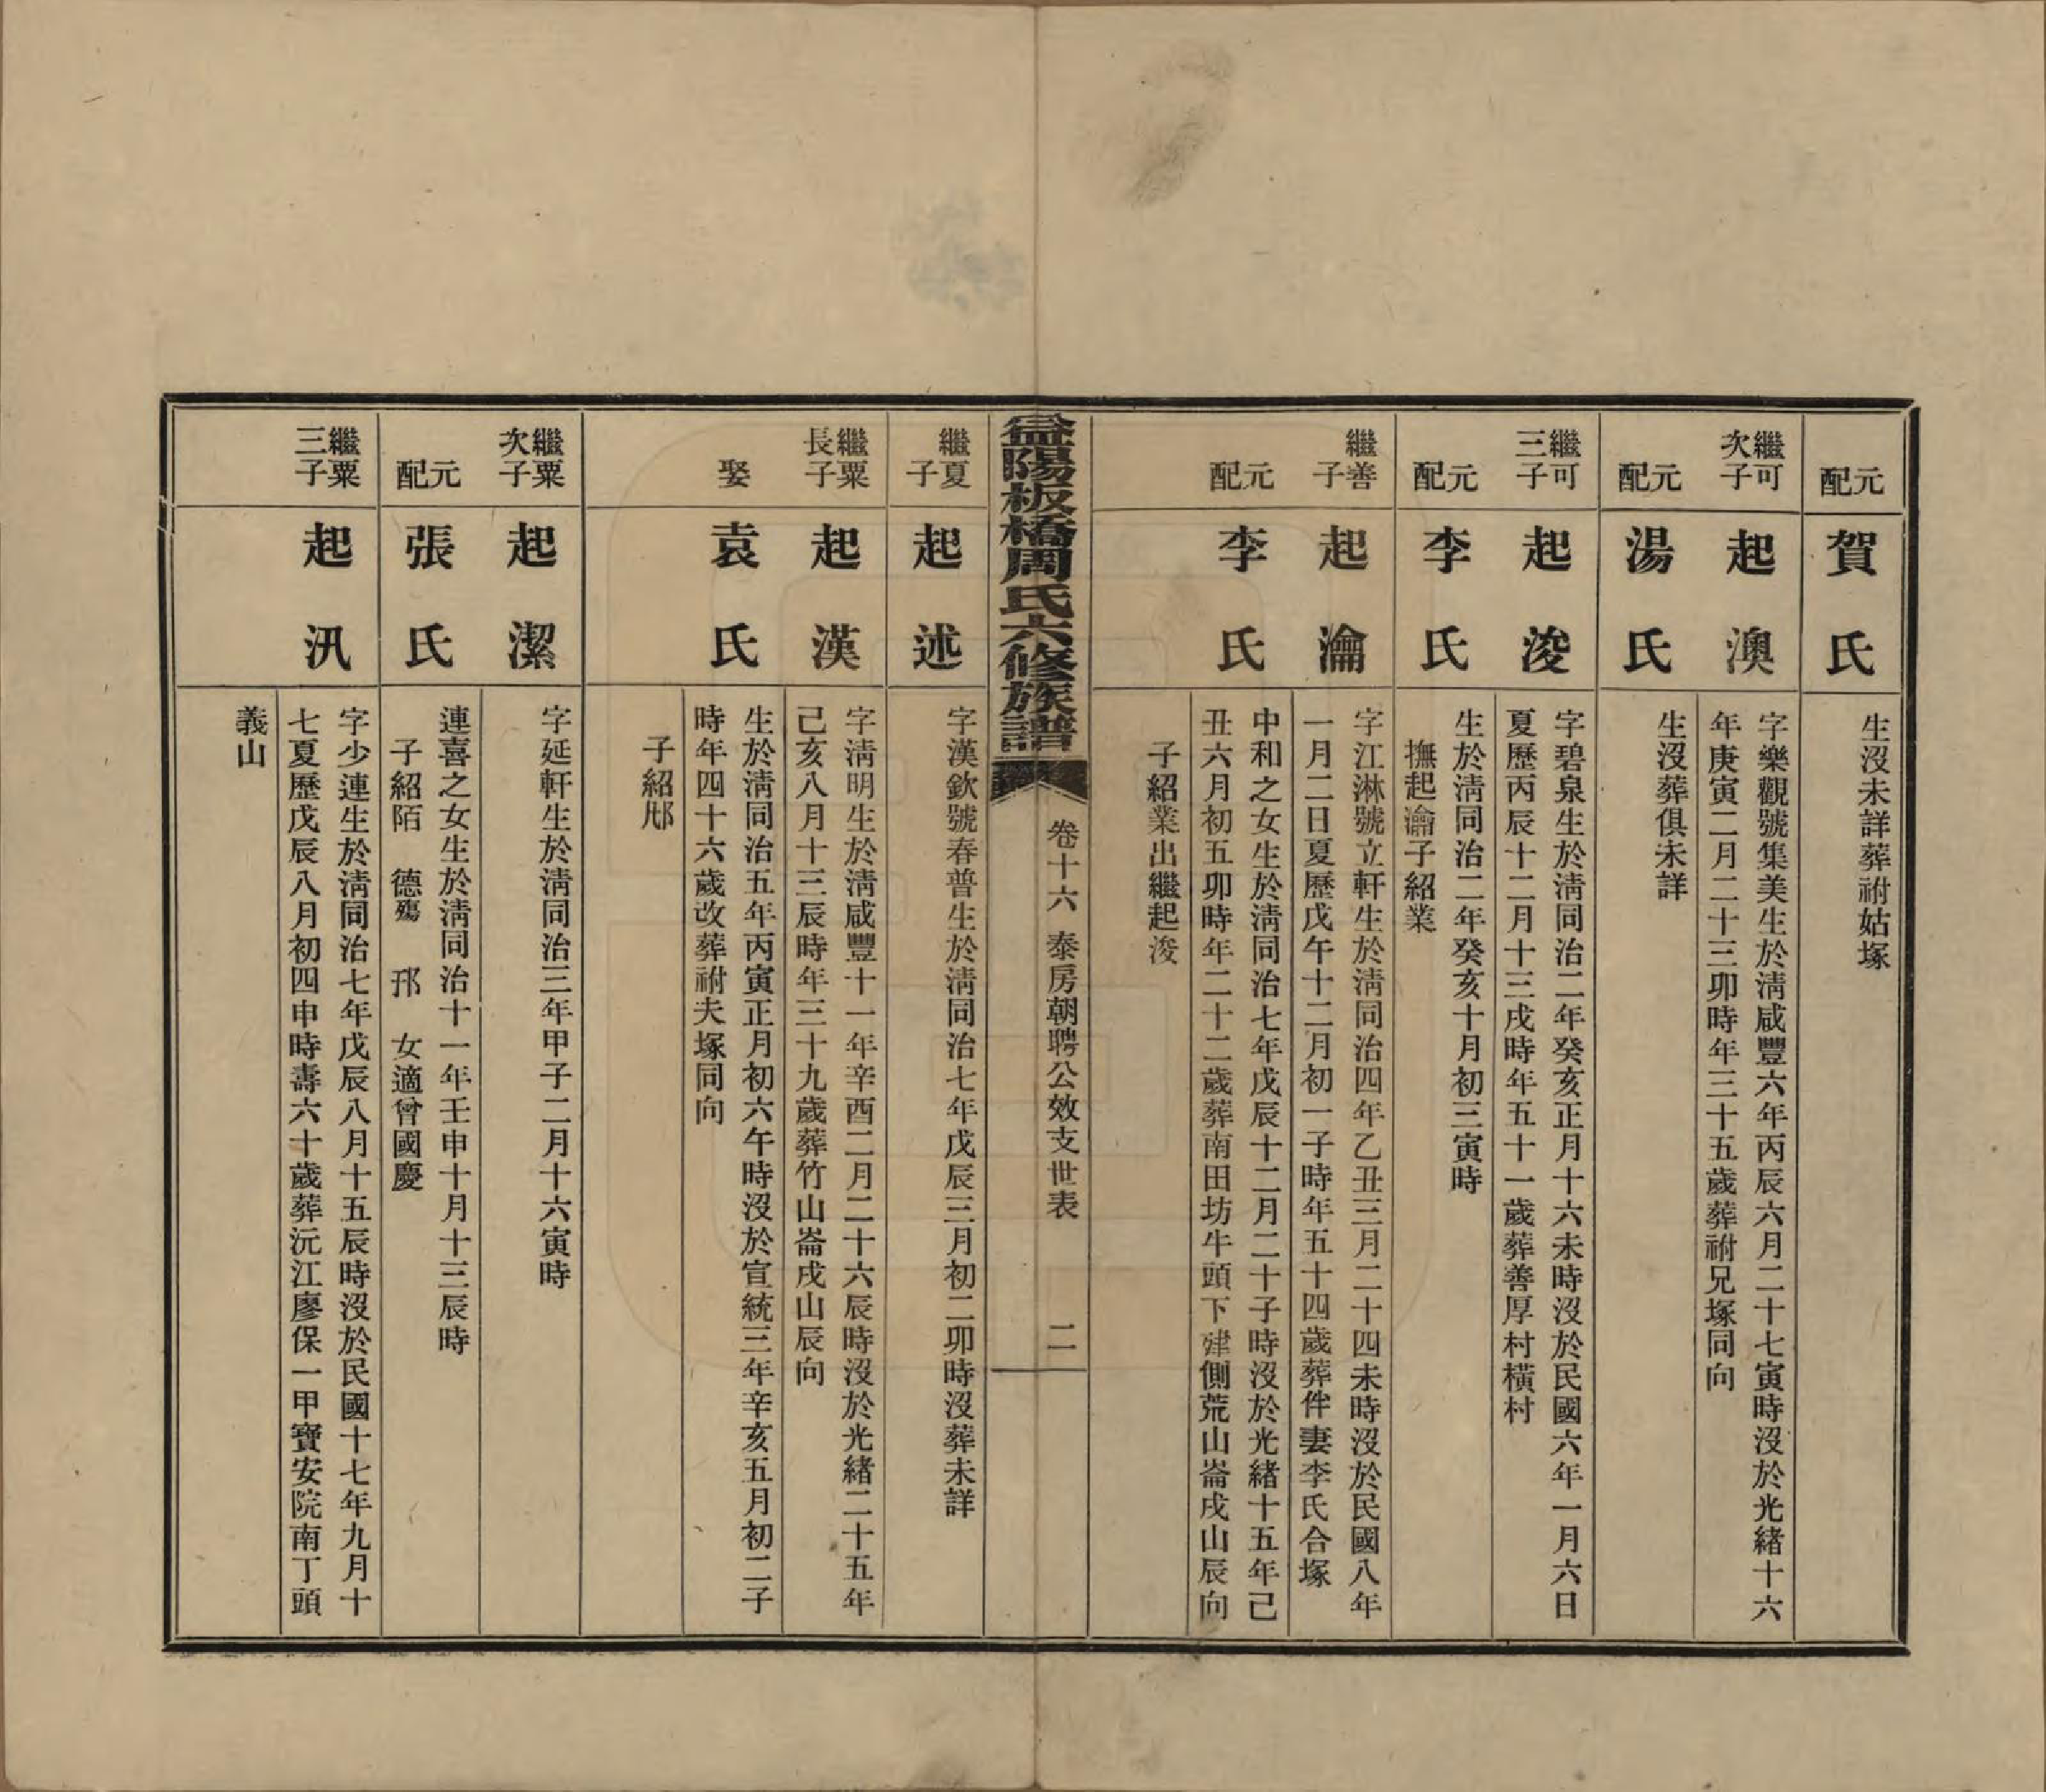 元配
賀氏
生沒未詳葬祔姑塚
繼可次子
起澳
字樂觀號集美生於淸咸豐六年丙辰六月二十七寅時沒於光緒十六
年庚寅二月二十三卯時年三十五歲葬祔兄塚同向
元配
湯氏
生沒葬俱未詳
繼可三子
起浚
字碧泉生於淸同治二年癸亥正月十六未時沒於民國六年一月六日
夏歷丙辰十二月十三戌時年五十一歲葬善厚村橫村
元配
李氏
生於淸同治二年癸亥十月初三寅時
撫起瀹子紹業
繼善子
起瀹
字江淋號立軒生於淸同治四年乙丑三月二十四未時沒於民國八年
一月二日夏歷戊午十二月初一子時年五十四歲葬伴妻李氏合塚
元配
李氏
中和之女生於淸同治七年戊辰十二月二十子時沒於光緒十五年己
丑六月初五卯時年二十二歲葬南田坊牛頭下肂側荒山崙戌山辰向
子紹業出繼起浚
益陽板橋周氏六修族譜
卷十六 泰房朝聘公效支世表
二
繼夏子
起述
字漢欽號春普生於淸同治七年戊辰三月初二卯時沒葬未詳
繼粟長子
起漢
字淸明生於淸咸豐十一年辛酉二月二十六辰時沒於光緒二十五年
己亥八月十三辰時年三十九歲葬竹山崙戌山辰向
娶
袁氏
生於淸同治五年丙寅正月初六午時沒於宣統三年辛亥五月初二子
時年四十六歲改葬祔夫塚同向
子紹邡
繼粟次子
起潔
字延軒生於淸同治三年甲子二月十六寅時
元配
張氏
連喜之女生於淸同治十一年壬申十月十三辰時
子紹陌 德殤 邘 女適曾國慶
繼粟三子
起汛
字少連生於淸同治七年戊辰八月十五辰時沒於民國十七年九月十
七夏歷戊辰八月初四申時壽六十歲葬沅江廖保一甲寶安院南丁頭
義山